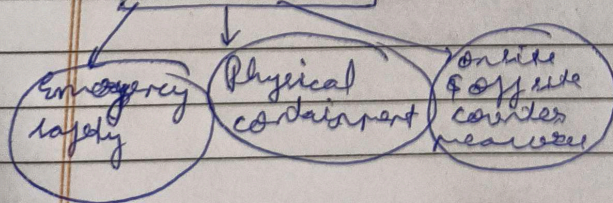 Emergency
safety
Physical
containment
onsite
& offsite
counter
measures